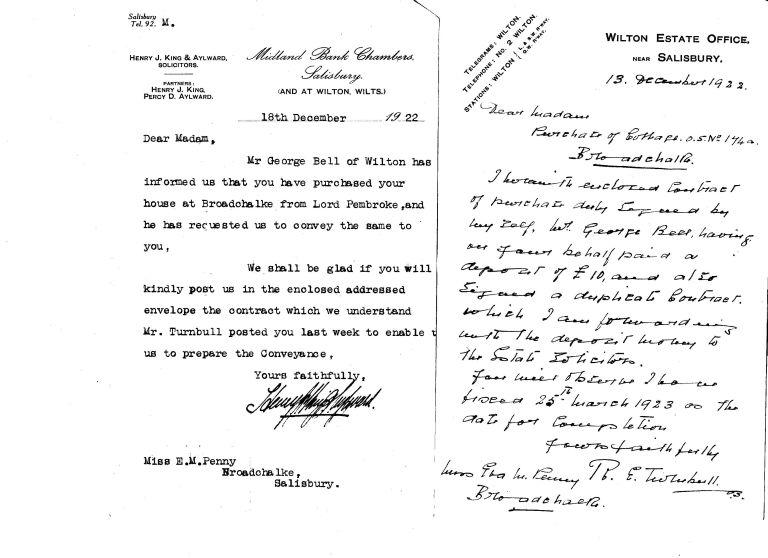 Salisbury
Tel. 92. M.
HENRY J. KING & AYLWARD,
SOLICITORS.
PARTNERS:
HENRY J. KING,
PERCY D. AYLWARD.
Midland Bank Chambers,
Salisbury.
(AND AT WILTON, WILTS.)
18th December 1922
Dear Madam,
Mr George Bell of Wilton has
informed us that you have purchased your
house at Broadchalke from Lord Pembroke,and
he has requested us to convey the same to
you,
We shall be glad if you will
kindly post us in the enclosed addressed
envelope the contract which we understand
Mr. Turnbull posted you last week to enable
us to prepare the Conveyance,
Yours faithfully,
Henry J King & Aylward.
Miss E.M.Penny
Broadchalke,
Salisbury.
TELEGRAMS: WILTON.
TELEPHONE: No. 2 WILTON.
STATIONS: WILTON { L. & S.W. R'WAY.
G.W. R'WAY.
WILTON ESTATE OFFICE,
NEAR SALISBURY.
13. December 1922.
Dear Madam
Purchase of Cottage. O.S. No 174a.
Broadchalke.
I herewith enclosed Contract
of purchase duly signed by
my self, Mr. George Bell, having
on your behalf paid a
deposit of £10, and also
signed a duplicate Contract.
which I am forwarding
with the deposit money to
the Estate Solicitors.
You will observe I have
fixed 25th March 1923 as the
date for Completion
Yours faithfully
R. E. Turnbull.
Miss Eva M. Penny
Broadchalke.